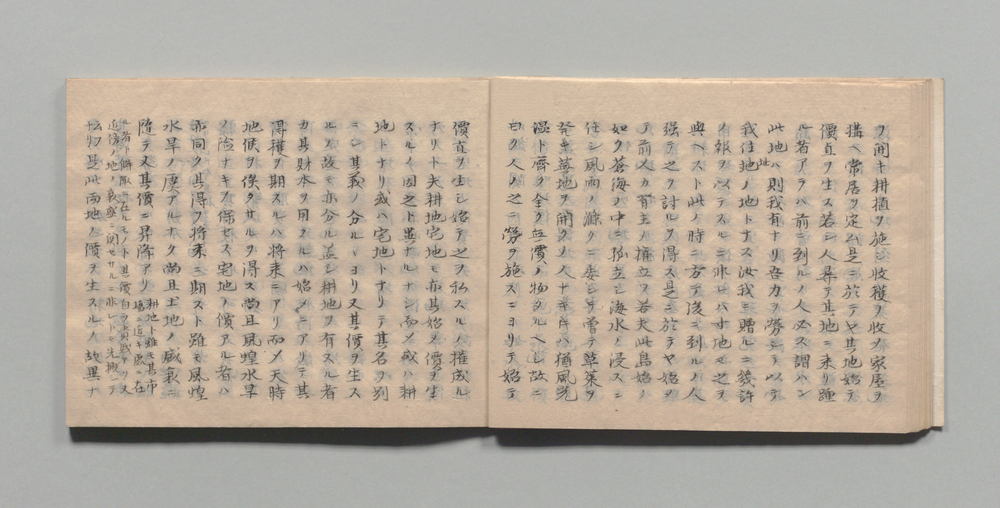 ヲ開キ耕植ヲ施シ收穫ヲ收メ家屋ヲ
構ヘ常居ヲ定ム是ニ於テヤ其地始テ
價直ヲ生ス若シ人アリテ其地ニ来リ
ル者アラハ前ニ到ルノ人必ス謂ハン
此地ハ此則我有ナリ吾力ヲ勞シテ以テ
我住地ノ地トナス汝我ニ贈ルニ幾許
ノ報ヲ以テスルニ非レハ寸地モ之ヲ
與ヘスト此ノ時ニ方テ後ニ到ルノ人
強テ之ヲ討ルヲ得ス是ニ於テヤ始メ
テ前人カ有主ノ權立ツ若夫此島始ノ
如ク蒼海ノ中ニ孤立シ海水ノ浸スニ
任シ風雨ノ滌クニ委シテ草莱ヲ
發キ蓋地ヲ開クノ人ナキハ猶風光
濕ト齊ク全ク無價ノ物タルヘシ故ニ
曰ク人ノ之ニ勞ヲ施スニヨリテ始テ
價直ヲ生シ始テ之ヲ私スルノ權成ル
ナリト夫耕地宅地モ亦其始ノ價ヲ生
スルノ因之ト異ナルナシ而メ或ハ耕
地トナリ或ハ宅地トナリテ其名ヲ別
ニシ其義ノ分ルヽヨリ又其ノ價ヲ生ス
ルノ故モ亦分ル蓋シ耕地ヲ有スル者
カ其財本ヲ用ヲルハ始メニアリテ其
得穫ヲ期スルハ将来ニアリ而メ天時
地候ヲ俟タサルヲ得ス尚且風蝗水旱
ノ險ナキヲ保セス宅地ノ價アル者ハ
亦同ク其得ヲ将来ニ期スト雖モ風蝗
水旱ノ虞アルナク尚且土地ノ盛衰ニ
隨テス其價ニ昇降アリ耕地ト雖モ其市
場ニ近キ處ニ在
ル者ト僻陬ニ在ルモノト其價自ラ貴賤アリ又
近傍ノ地ノ義盛ニ関セサルニ非レトモ先概シテ
云フ是此兩地ノ價ヲ生スルノ故異ナ